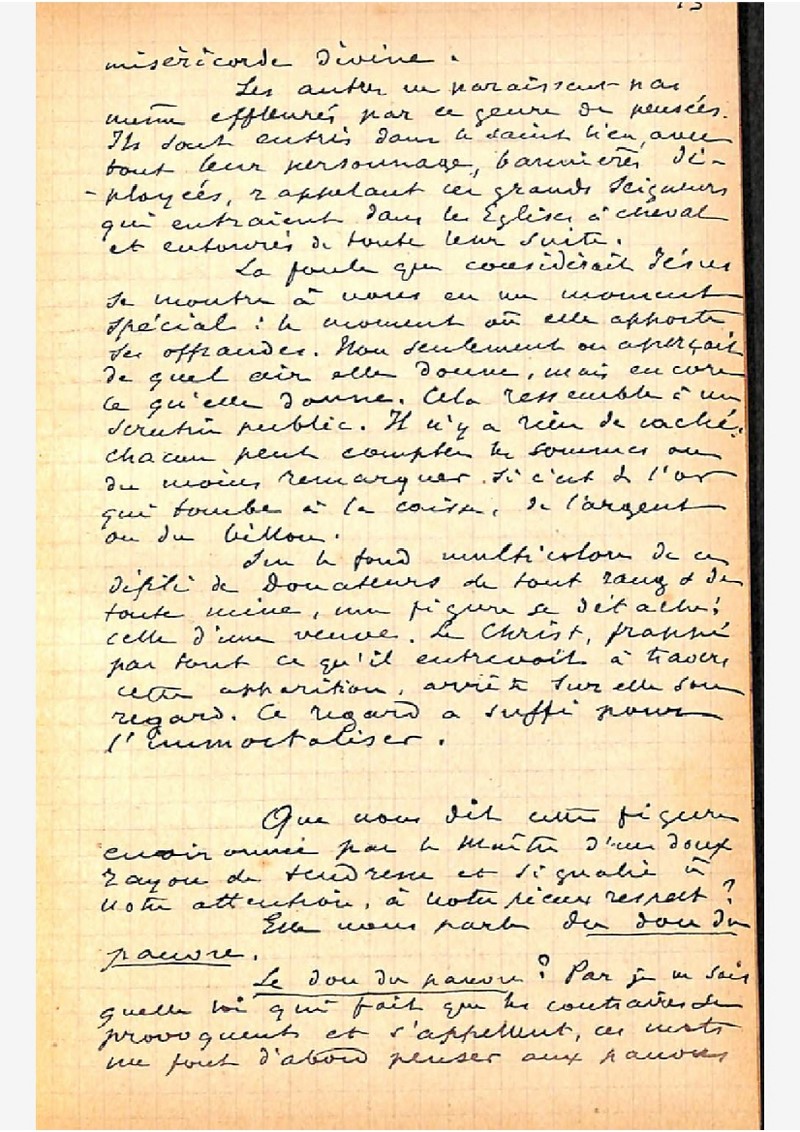 miséricorde divine.
Les autres ne paraissent pas
même effleurés par ce genre de pensées.
Ils sont entrés dans le saint lieu, avec
tout leur personnage, bannières dé-
-ployées, rappelant ces grands Seigneurs
qui entraient dans les Eglises à cheval
et entourés de toute leur suite.
La foule que considérait Jésus
se montre à nous en un moment
spécial : le moment où elle apporte
ses offrandes. Non seulement on aperçoit
de quel air elle donne, mais encore
ce qu'elle donne. Cela ressemble à un
scrutin public. Il n'y a rien de caché;
chacun peut compter les sommes ou
du moins remarquer si c'est de l'or
qui tombe à la caisse, de l'argent
ou du billon.
Sur le fond multicolore de ce
défilé de Donateurs de tout rang & de
toute mine, une figure se détache:
celle d'une veuve. Le Christ, frappé
par tout ce qu'il entrevoit à travers
cette apparition, arrête sur elle son
regard. Ce regard a suffi pour
l'immortaliser.
Que nous dit cette figure
environnée par le Maître d'un doux
rayon de tendresse et signalée à
notre attention, à notre pieux respect ?
Elle nous parle du don du
pauvre.
Le don du pauvre ? Par je ne sais
quelle loi qui fait que les contraires se
provoquent et s'appellent, ces mots
me font d'abord penser aux pauvres